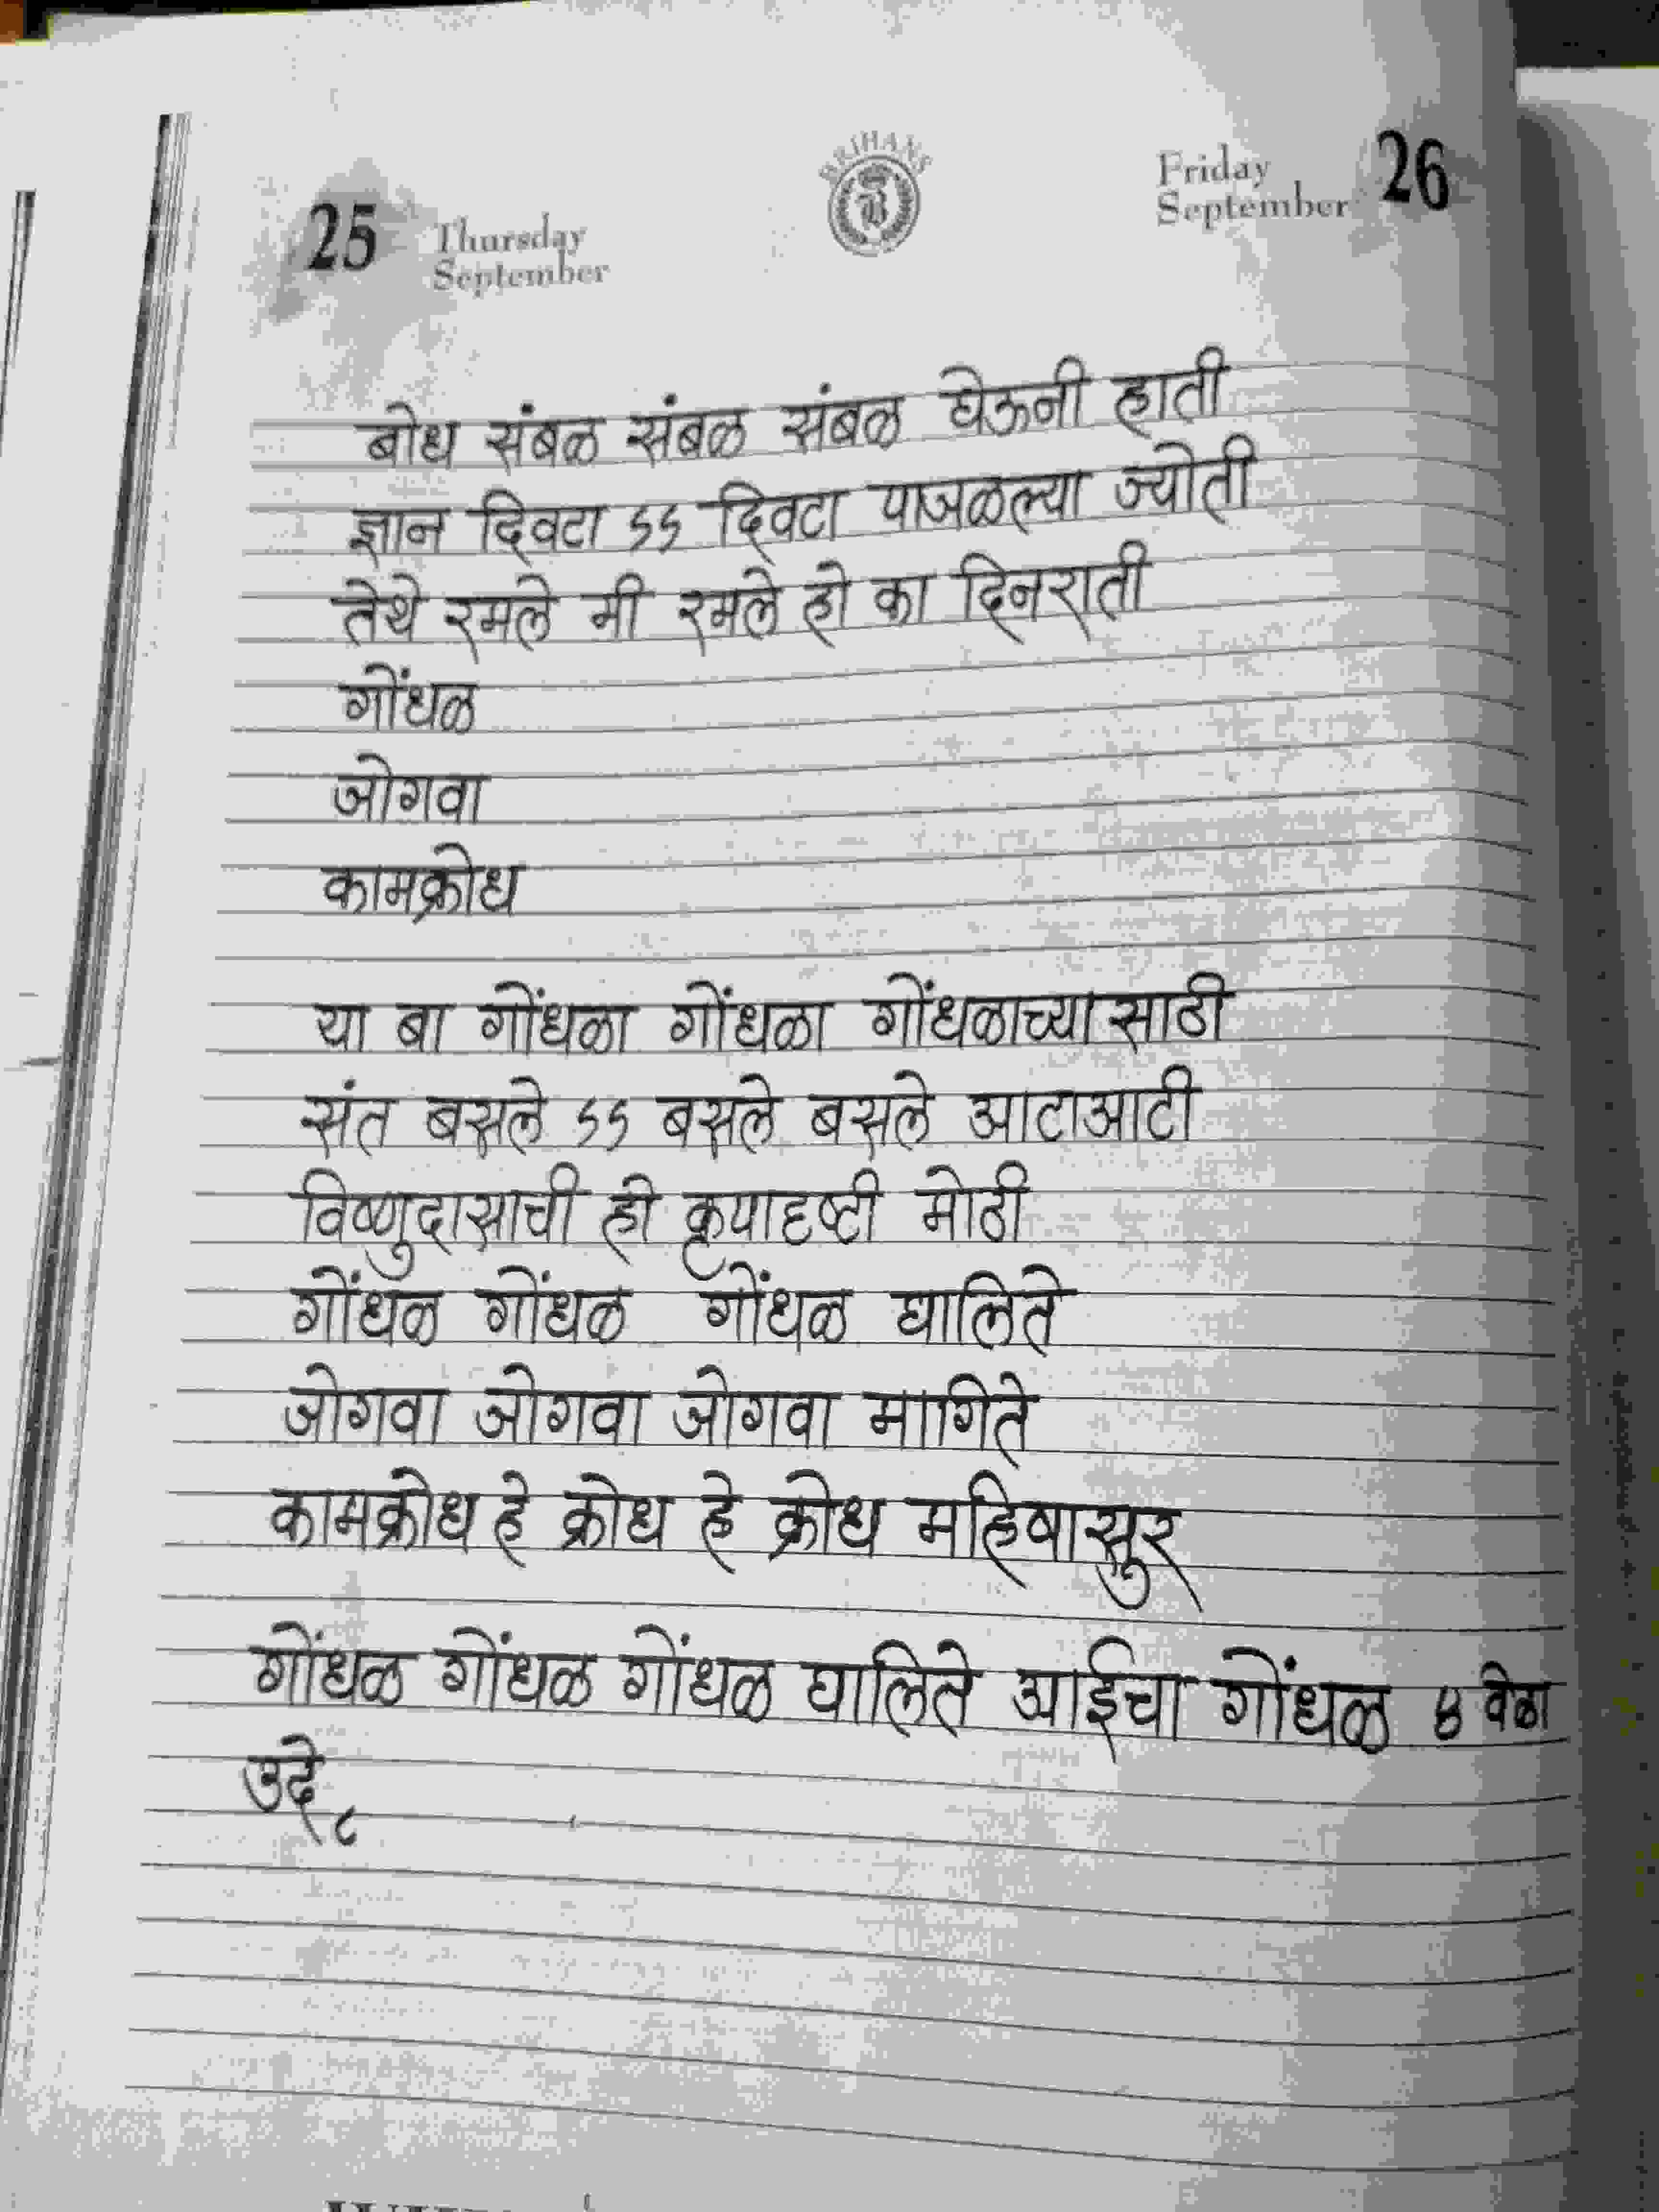 BRIHANS
25 Thursday September
Friday September 26
बोध संबळ संबळ संबळ घेऊनी हाती
ज्ञान दिवटा ऽऽ दिवटा पाजळल्या ज्योती
तेथे रमले मी रमले हो का दिनराती
गोंधळ
जोगवा
कामक्रोध
या बा गोंधळा गोंधळा गोंधळाच्या साठी
संत बसले ऽऽ बसले बसले आटाआटी
विष्णुदासाची ही कृपादृष्टी मोठी
गोंधळ गोंधळ गोंधळ घालिते
जोगवा जोगवा जोगवा मागिते
कामक्रोध हे क्रोध हे क्रोध महिषासुर
गोंधळ गोंधळ गोंधळ घालिते आईचा गोंधळ वेळा
उदे८